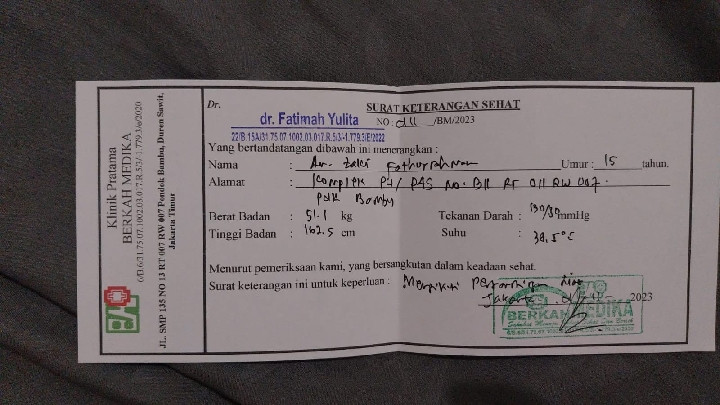 Klinik Pratama
BERKAH MEDIKA
6/B.6/31.75.07.1002.03.017.R.5/3/-1.779.3/e/2020
JL. SMP 135 NO 13 RT 007 RW 007 Pondok Bambu, Duren Sawit,
Jakarta Timur
Dr.
dr. Fatimah Yulita
22/B.15A/31.75.07.1002.03.017.R.5/3/-1.779.3/E/2022
SURAT KETERANGAN SEHAT
NO: /BM/2023
Yang bertandatangan dibawah ini menerangkan :
Nama : An. Zaki Fathurrahman Umur : 15 tahun.
Alamat : Komplek P4S No. RT 011 RW 007.
Pdk Bambu
Berat Badan : 51.1 kg Tekanan Darah : mmHg
Tinggi Badan : 162.5 cm Suhu : °C
Menurut pemeriksaan kami, yang bersangkutan dalam keadaan sehat.
Surat keterangan ini untuk keperluan : Mengikuti
Jakarta, 2023
BERKAH MEDIKA